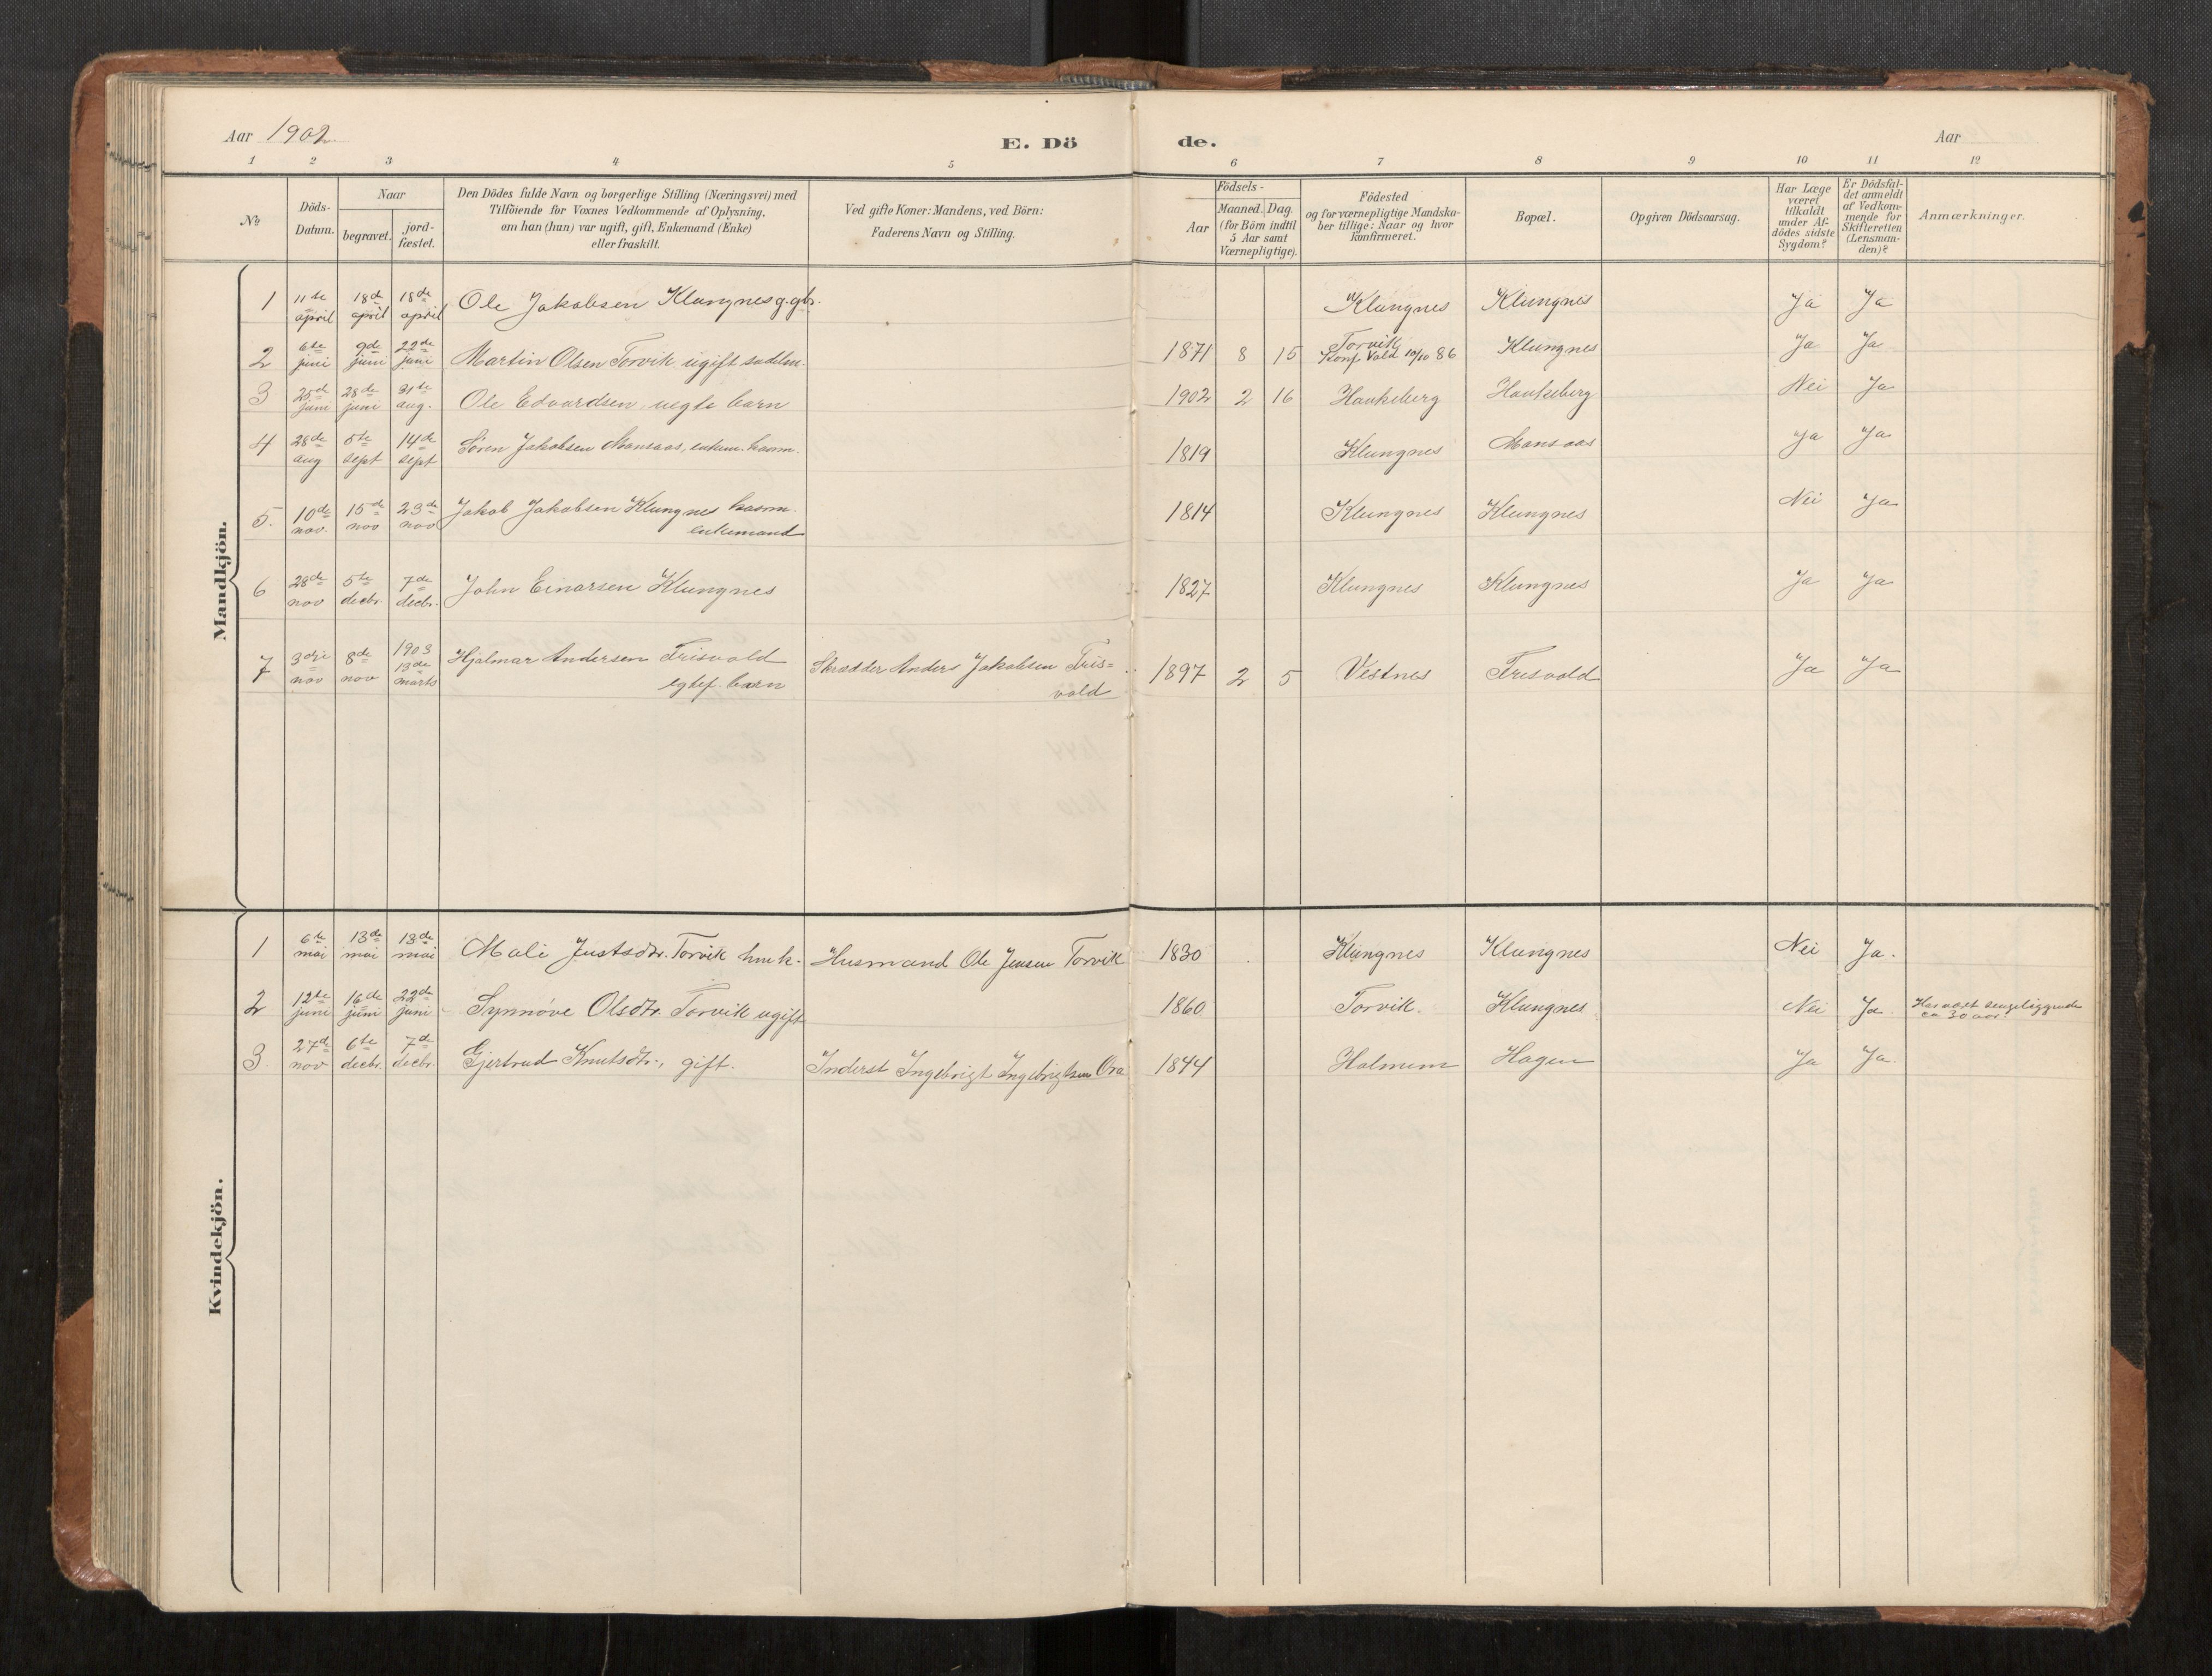 Aar 1902
E. Dö de.
Aar
1 2 3 4 5 6 7 8 9 10 11 12
No
Döds-Datum.
Naar
begravet.
jord-fæstet.
Den Dödes fulde Navn og borgerlige Stilling (Næringsvei) med
Tilföiende for Voxnes Vedkommende af Oplysning,
om han (hun) var ugift, gift, Enkemand (Enke)
eller fraskilt.
Ved gifte Koner: Mandens, ved Börn:
Faderens Navn og Stilling.
Födsels-
Aar
Maaned. Dag.
(for Börn indtil
5 Aar samt
Værnepligtige).
Födested
og for værnepligtige Mandska-
ber tillige: Naar og hvor
konfirmeret.
Bopæl.
Opgiven Dödsaarsag.
Har Læge
været
tilkaldt
under Af-
dödes sidste
Sygdom?
Er Dödsfal-
det anmeldt
af Vedkom-
mende for
Skifteretten
(Lensman-
den)?
Anmærkninger.
Mandkjön.
1 11te april 18de april 18de april Ole Jakobsen Klungnes g. gbr. Klungnes Klungnes Ja Ja
2 6te juni 9de juni 22de juni Martin Olsen Torvik ugift sadelm. 1871 8 15 Torvik Konf. Vold 10/10 86 Klungnes Ja Ja
3 25d juni 28de juni 31te aug. Ole Edvardsen uegte barn 1902 2 16 Haukeberg Haukeberg Nei Ja
4 28de aug 5te sept 14de sept Søren Jakobsen Monsaas, enkem. kaarm. 1819 Klungnes Monsaas Ja Ja
5. 10de nov. 15de nov 23de nov Jakob Jakobsen Klungnes kaarm.
enkemand 1814 Klungnes Klungnes Nei Ja
6 28de nov 5te decbr. 7de decbr. John Einarsen Klungnes 1827 Klungnes Klungnes Ja Ja
7 3dje nov 8de nov 1903 13de marts Hjalmar Andersen Frisvold
egtef. barn
Skrædder Anders Jakobsen Fris=
vold 1897 2 5 Vestnes Frisvold Ja Ja
Kvindekjön.
1 6te mai 13de mai 13de mai Mali Justsdtr. Torvik hmk. Husmand Ole Jensen Torvik 1830 Klungnes Klungnes Nei Ja.
2 12te juni 16de juni 22de juni Synnøve Olsdtr. Torvik ugift 1860 Torvik. Klungnes Nei Ja. Har vært sengeliggende
ca 30 aar.
3. 27d nov 6te decbr. 7de decbr. Gjertrud Knutsdtr., gift. Inderst Ingebrigt Ingebrigtsen Ora 1844 Holmem Hagen Ja Ja.